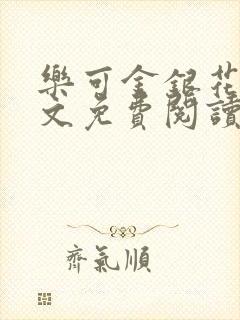 樂可金銀花
文免費閱讀
齊氣順